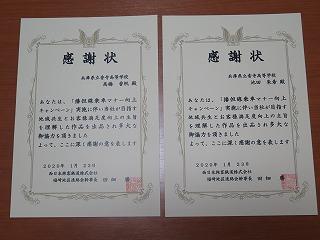 感謝状
兵庫県立香寺高等学校
殿
あなたは、「播但線乗車マナー向上
キャンペーン」実施に伴い当社が目指す
地域共生とお客様満足度向上の主旨
を理解した作品を出品され多大な
御協力を頂きました
よって、ここに深く感謝の意を表します
2020年1月23日
西日本旅客鉄道株式会社
福崎地区連絡会幹事長 田畑
感謝状
兵庫県立香寺高等学校
池田 殿
あなたは、「播但線乗車マナー向上
キャンペーン」実施に伴い当社が目指す
地域共生とお客様満足度向上の主旨
を理解した作品を出品され多大な
御協力を頂きました
よって、ここに深く感謝の意を表します
2020年1月23日
西日本旅客鉄道株式会社
福崎地区連絡会幹事長 田畑